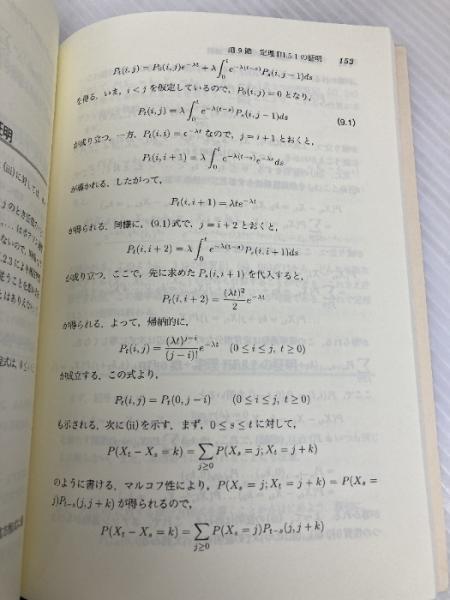 第9節 定理III.5.1の証明 153
P_t(i, j) = P_0(i, j)e^{-λt} + λ∫_0^t e^{-λ(t-s)}P_s(i, j-1)ds
を得る. いま, i < j を仮定しているので, P_0(i, j) = 0 となり,
P_t(i, j) = λ∫_0^t e^{-λ(t-s)}P_s(i, j-1)ds (9.1)
が成り立つ. 一方, P_t(i, i) = e^{-λt} なので, j = i+1 とおくと,
P_t(i, i+1) = λ∫_0^t e^{-λ(t-s)}e^{-λs}ds
が導かれる. したがって,
P_t(i, i+1) = λte^{-λt}
が得られる. 同様に, (9.1)式で, j = i+2 とおくと,
P_t(i, i+2) = λ∫_0^t e^{-λ(t-s)}P_s(i, i+1)ds
が成り立つ. ここで, 先に求めた P_s(i, i+1) を代入すると,
P_t(i, i+2) = (λt)^2/2 e^{-λt}
が得られる. よって, 帰納的に,
P_t(i, j) = (λt)^{j-i}/(j-i)! e^{-λt} (0 ≤ i ≤ j, t ≥ 0)
が成立する. この式より,
P_t(i, j) = P_t(0, j-i) (0 ≤ i ≤ j, t ≥ 0)
も示される. 次に(ii)を示す. まず, 0 ≤ s ≤ t に対して,
P(X_t - X_s = k) = ∑_{j≥0} P(X_s = j; X_t = j+k)
のように書ける. マルコフ性により, P(X_s = j; X_t = j+k) = P(X_s =
j)P_{t-s}(j, j+k) が得られるので,
P(X_t - X_s = k) = ∑_{j≥0} P(X_s = j)P_{t-s}(j, j+k)